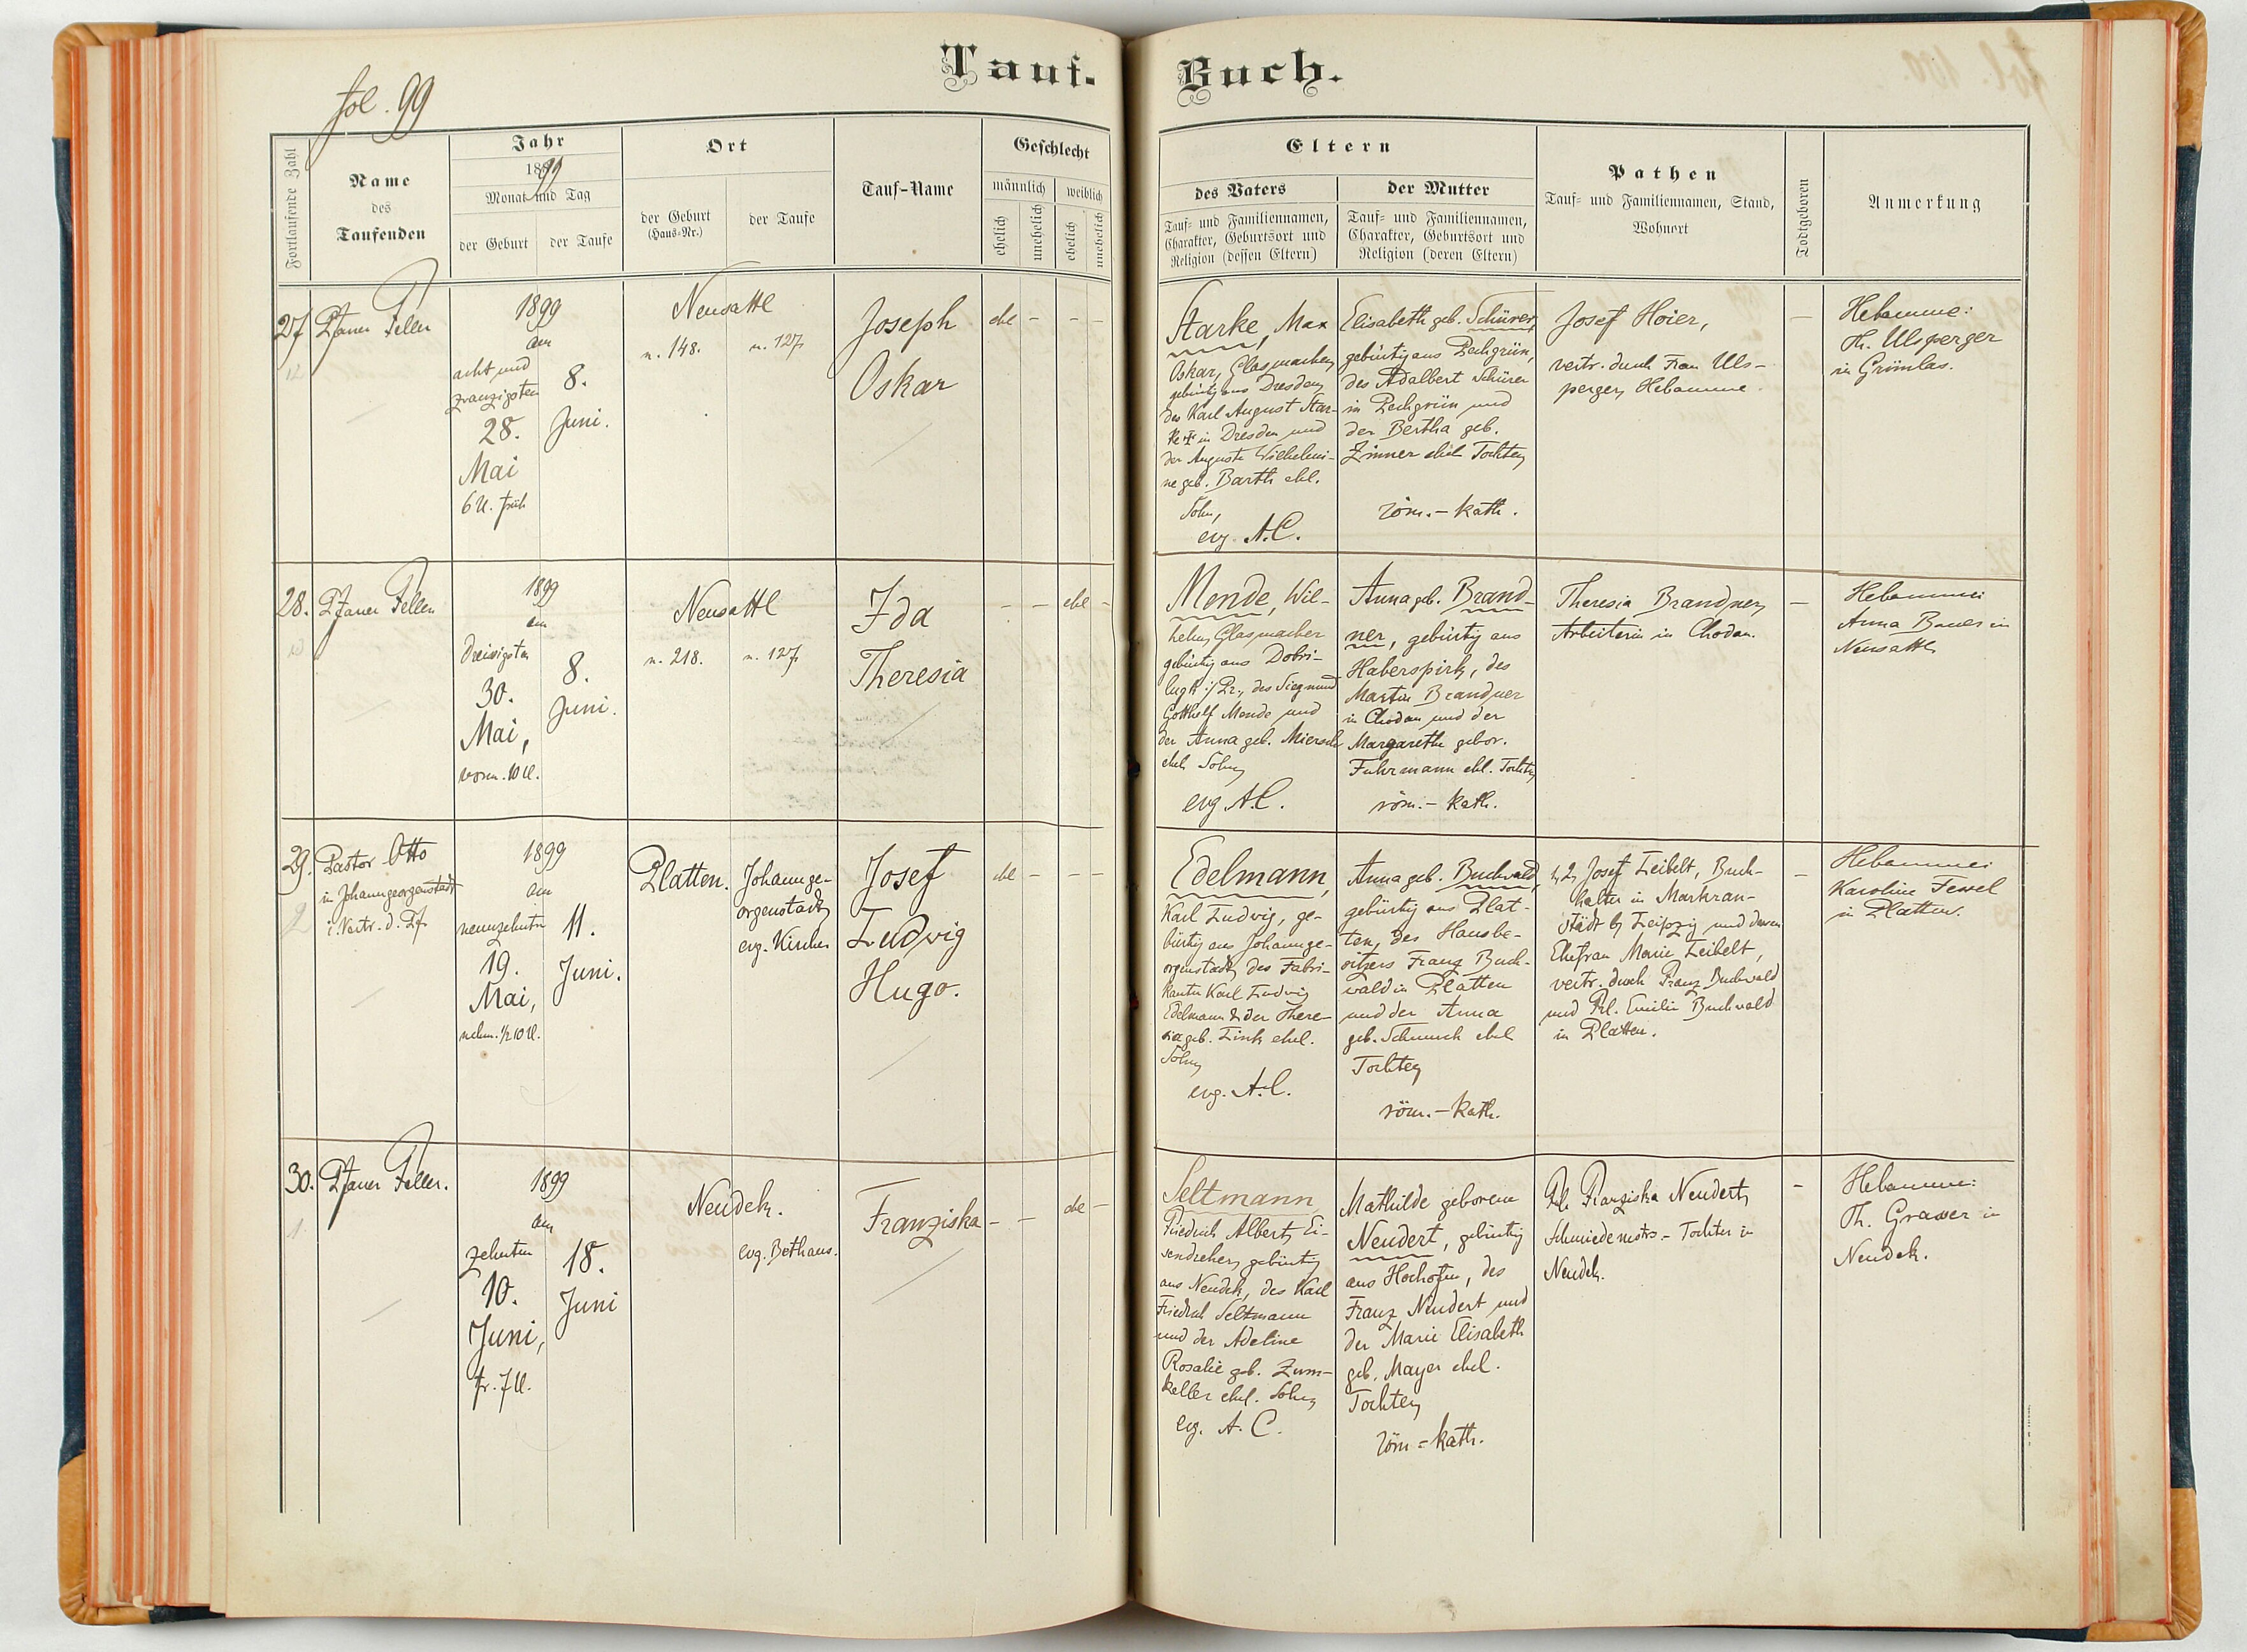 fol. 99
Tauf-Buch.
Fortlaufende Zahl
Name
des
Taufenden
Jahr
1899
Monat und Tag
der Geburt
der Taufe
Ort
der Geburt
(Haus-Nr.)
der Taufe
Tauf-Name
Geschlecht
männlich
weiblich
ehelich
unehelich
ehelich
unehelich
Eltern
des Vaters
Tauf- und Familiennamen,
Charakter, Geburtsort und
Religion (dessen Eltern)
der Mutter
Tauf- und Familiennamen,
Charakter, Geburtsort und
Religion (deren Eltern)
Pathen
Tauf- und Familiennamen, Stand,
Wohnort
Todtgeboren
Anmerkung
27.
Pfarrer Feller
1899
am
acht und
zwanzigsten
28.
Mai
6 U. früh
8.
Juni.
Neusattl
n. 148.
n. 127,
Joseph
Oskar
ehl
-
-
-
Starke, Max
Oskar, Glasmacher,
gebürtig aus Dresden,
des Karl August Star-
ke † in Dresden und
der Auguste Wilhelmi-
ne geb. Barth ehl.
Sohn,
evg. A.C.
Elisabeth geb. Schürer,
gebürtig aus Pechgrün,
des Adalbert Schürer
in Pechgrün und
der Bertha geb.
Zinner ehel Tochter,
röm.-kath.
Josef Hoier,
vertr. durch Frau Uls-
perger, Hebamme.
-
Hebamme:
Th. Ulsperger
in Grünlas.
28.
Pfarrer Feller
1899
am
dreissigsten
30.
Mai,
vorm. 10 U.
8.
Juni.
Neusattl
n. 218.
n. 127,
Ida
Theresia
-
-
ehl
-
Mende, Wil-
helm, Glasmacher
gebürtig aus Dobri-
lugk i/Pr., des Siegmund
Gotthelf Mende und
der Anna geb. Miersch
ehel. Sohn,
evg. A.C.
Anna geb. Brand-
ner, gebürtig aus
Haberspirk, des
Martin Brandner
in Chodau und der
Margarethe gebor.
Fuhrmann ehl. Tochter,
röm.-kath.
Theresia Brandner,
Arbeiterin in Chodau.
-
Hebamme:
Anna Bauer in
Neusattl,
29.
Pastor Otto
in Johanngeorgenstadt
i. Vertr. d. Pf.
1899
am
neunzehnten
19.
Mai,
nchm. ½10 U.
11.
Juni.
Platten.
Johannge-
orgenstadt,
evg. Kirche.
Josef
Ludwig
Hugo.
ehl
-
-
-
Edelmann,
Karl Ludwig, ge-
bürtig aus Johannge-
orgenstadt, des Fabri-
kanten Karl Ludwig
Edelmann & der There-
sia geb. Link ehel.
Sohn,
evg. A.C.
Anna geb. Buchwald,
gebürtig aus Plat-
ten, des Hausbe-
sitzers Franz Buch-
wald in Platten
und der Anna
geb. ehel
Tochter,
röm.-kath.
1, 2, Josef Leibelt, Buch-
halter in Markran-
städt b, Leipzig und dessen
Ehefrau Marie Leibelt,
vertr. durch Franz Buchwald
und Frl. Emilie Buchwald
in Platten.
-
Hebamme:
Karoline
in Platten.
30.
Pfarrer Feller.
1899
am
zehnten
10.
Juni,
fr. 7 U.
18.
Juni
Neudek.
evg. Bethaus.
Franziska
-
-
ehl
-
Seltmann
Friedrich Albert, Ei-
sendreher, gebürtig
aus Neudek, des Karl
Friedrich Seltmann
und der Adeline
Rosalie geb. Zum-
keller ehel. Sohn,
evg. A.C.
Mathilde geborene
Neudert, gebürtig
aus Hochofen, des
Franz Neudert und
der Marie Elisabeth
geb. Mayer ehel.
Tochter,
röm-kath.
Frl. Franziska Neudert,
Schmiedemstrs.-Tochter in
Neudek.
-
Hebamme:
Th. Grasser in
Neudek.